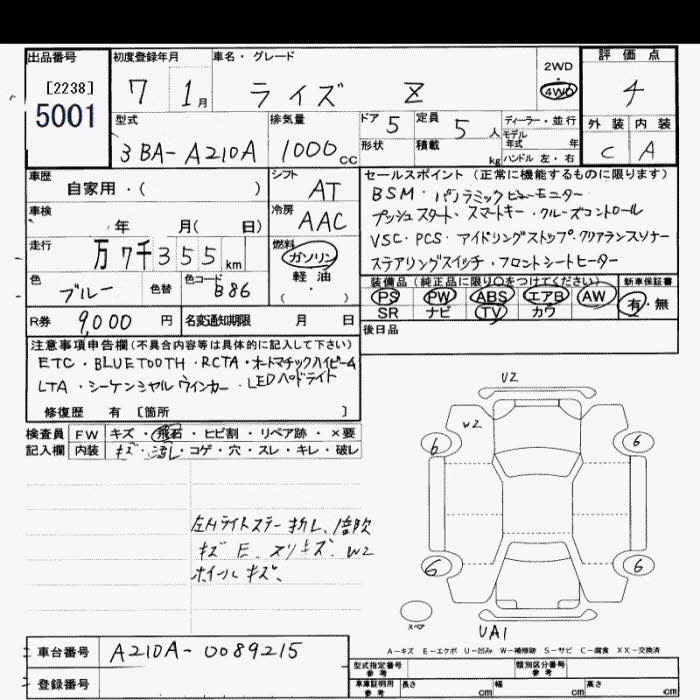 出品番号 初度登録年月 車名・グレード 2WD 評価点
[2238] 7 1月 ライズ Z ・
5001 4WD 4
型式 排気量 ドア 5 定員 5人 ディーラー・並行 外装 内装
3BA-A210A 1000cc 形状 積載 kg モデル年式 年 C A
ハンドル 左・右
車歴 シフト セールスポイント (正常に機能するものに限ります)
自家用・( ) AT BSM・パノラミックビューモニター
車検 冷房 プッシュスタート・スマートキー・クルーズコントロール
年 月( 日) AAC VSC・PCS・アイドリングストップ・クリアランスソナー
走行 燃料 ステアリングスイッチ・フロントシートヒーター
万7千355km ガソリン 装備品 (純正品に限り○をつけてください) 新車保証書
色 色替 色コード 軽油 PS PW ABS エアB AW 有・無
ブルー B86 ( ・ ) SR ナビ TV カワ
R券 9,000円 名変通知期限 月 日 後日品
注意事項申告欄(不具合内容等は具体的に記入して下さい)
ETC・BLUETOOTH・RCTA・オートマチックハイビーム
LTA・シーケンシャルウインカー・LEDヘッドライト
修復歴 有 [箇所 ]
検査員 FW キズ・飛石・ヒビ割・リペア跡・×要
記入欄 内装 キズ・汚れ・コゲ・穴・スレ・キレ・破レ
U2
W2
6 6
左Hライトステー折レ、
キズ E、スリキズ、W2
ホイールキズ、
6 6
スペア
UA1
A-キズ E-エクボ U-凹み W-補修跡 S-サビ C-腐食 XX-交換済
車台番号 A210A-0089215
型式指定番号 参考 類別区分番号 参考
登録番号 車庫証明用 参考 長さ cm 幅 cm 高さ cm